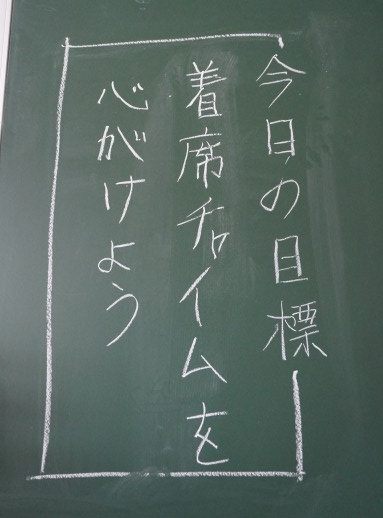 今日の目標
着席チャイムを
心がけよう